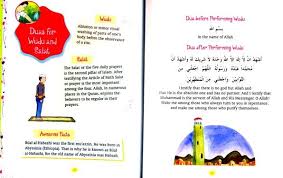 Dua for
Wudu and
Salat
Wudu
Ablution or minor ritual
washing of parts of one's
body before the observance
of a rite.
Salat
The Salat or the five daily prayers
is the second pillar of Islam. After
testifying the Article of faith Salat
or prayer is the most important
among the four. Allah, in numerous
places in the Quran, enjoins the
believers to be regular in their
prayers.
Awesome Facts
Bilal al-Habashi was the first muezzin. He was born in
Abyssinia (Ethiopia). That is why he is known as Bilal
al-Habashi, for the old name of Abyssinia was Habash.
Dua before Performing Wudu
بِسْمِ اللهِ
In the name of Allah!
Dua after Performing Wudu
أَشْهَدُ أَنْ لَا إِلَهَ إِلَّا اللهُ وَحْدَهُ لَا شَرِيكَ لَهُ وَأَشْهَدُ أَنَّ
مُحَمَّدًا عَبْدُهُ وَرَسُولُهُ، اللَّهُمَّ اجْعَلْنِي مِنَ
التَّوَّابِينَ وَاجْعَلْنِي مِنَ الْمُتَطَهِّرِينَ
I testify that there is no god but Allah and
He is the absolute one and has no partner. And I testify that
Muhammad is the servant of Allah and His Messenger. O Allah!
Make me among those who always turn to you in repentance,
and make me among those who purify themselves.